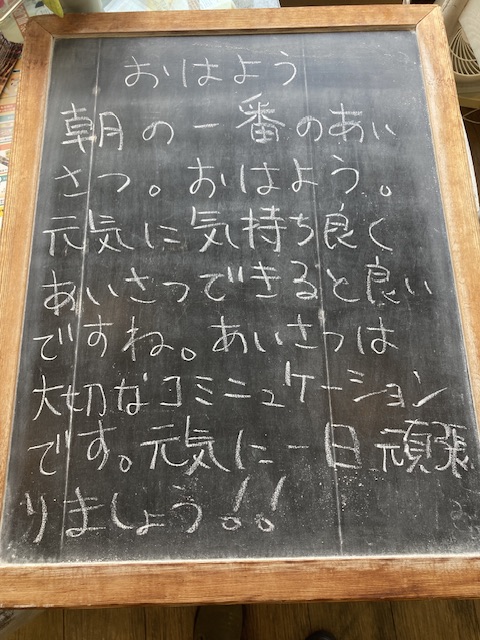 おはよう
朝の一番のあい
さつ。おはよう。
元気に気持ち良く
あいさつできると良い
ですね。あいさつは
大切なコミニュケーション
です。元気に一日頑張
りましょう!!